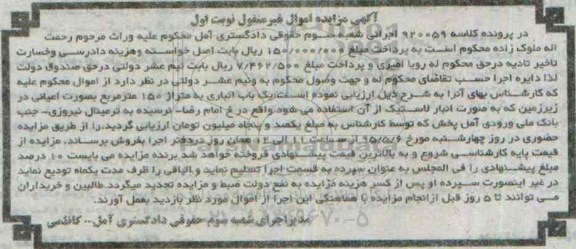 آگهی مزایده اموال غیرمنقول نوبت اول
در پرونده کلاسه ۹۲۰۰۵۹ اجرائی شعبه سوم حقوقی دادگستری آمل محکوم علیه وراث مرحوم رحمت
اله ملوک زاده محکوم است به پرداخت مبلغ ۱۵۰/۰۰۰/۰۰۰ ریال بابت اصل خواسته وهزینه دادرسی وخسارت
تأخیر تادیه درحق محکوم له رویا امیری و پرداخت مبلغ ۷/۴۶۲/۵۰۰ ریال بابت نیم عشر دولتی درحق صندوق دولت
لذا دایره اجرا حسب تقاضای محکوم له و جهت وصول محکوم به ونیم عشر دولتی در نظر دارد از اموال محکوم علیه
که کارشناس بهای آنرا به شرح ذیل ارزیابی نموده است:یک باب انباری به متراژ ۱۵۰ مترمربع بصورت اعیانی در
زیرزمین که به صورت انبار لاستیک از آن استفاده می شود.واقع در خ امام رضا- نرسیده به ترمینال نیروزی- جنب
بانک ملی ورودی آمل پخش که توسط کارشناس به مبلغ یکصد و پنجاه میلیون تومان ارزیابی گردید.را از طریق مزایده
حضوری در روز چهارشنبه مورخ ۹۵/۵/۶ از ساعت همان روز دردفتر اجرا بفروش برساند. مزایده از
قیمت پایه کارشناسی شروع و به بالاترین قیمت پیشنهادی فروخته خواهد شد برنده مزایده می بایست ۱۰ درصد
مبلغ پیشنهادی را فی المجلس به عنوان سپرده به قسمت اجرا تسلیم نماید و الباقی را ظرف مدت یکماه تودیع نماید
در غیر اینصورت سپرده او پس از کسر هزینه مزایده به نفع دولت ضبط و مزایده تجدید میگردد.طالبین و خریداران
می توانند تا ۵ روز قبل ازانجام مزایده با هماهنگی این اجرا از اموال مورد نظر بازدید بعمل آورند.
مدیراجرای شعبه سوم حقوقی دادگستری آمل-- کاظمی